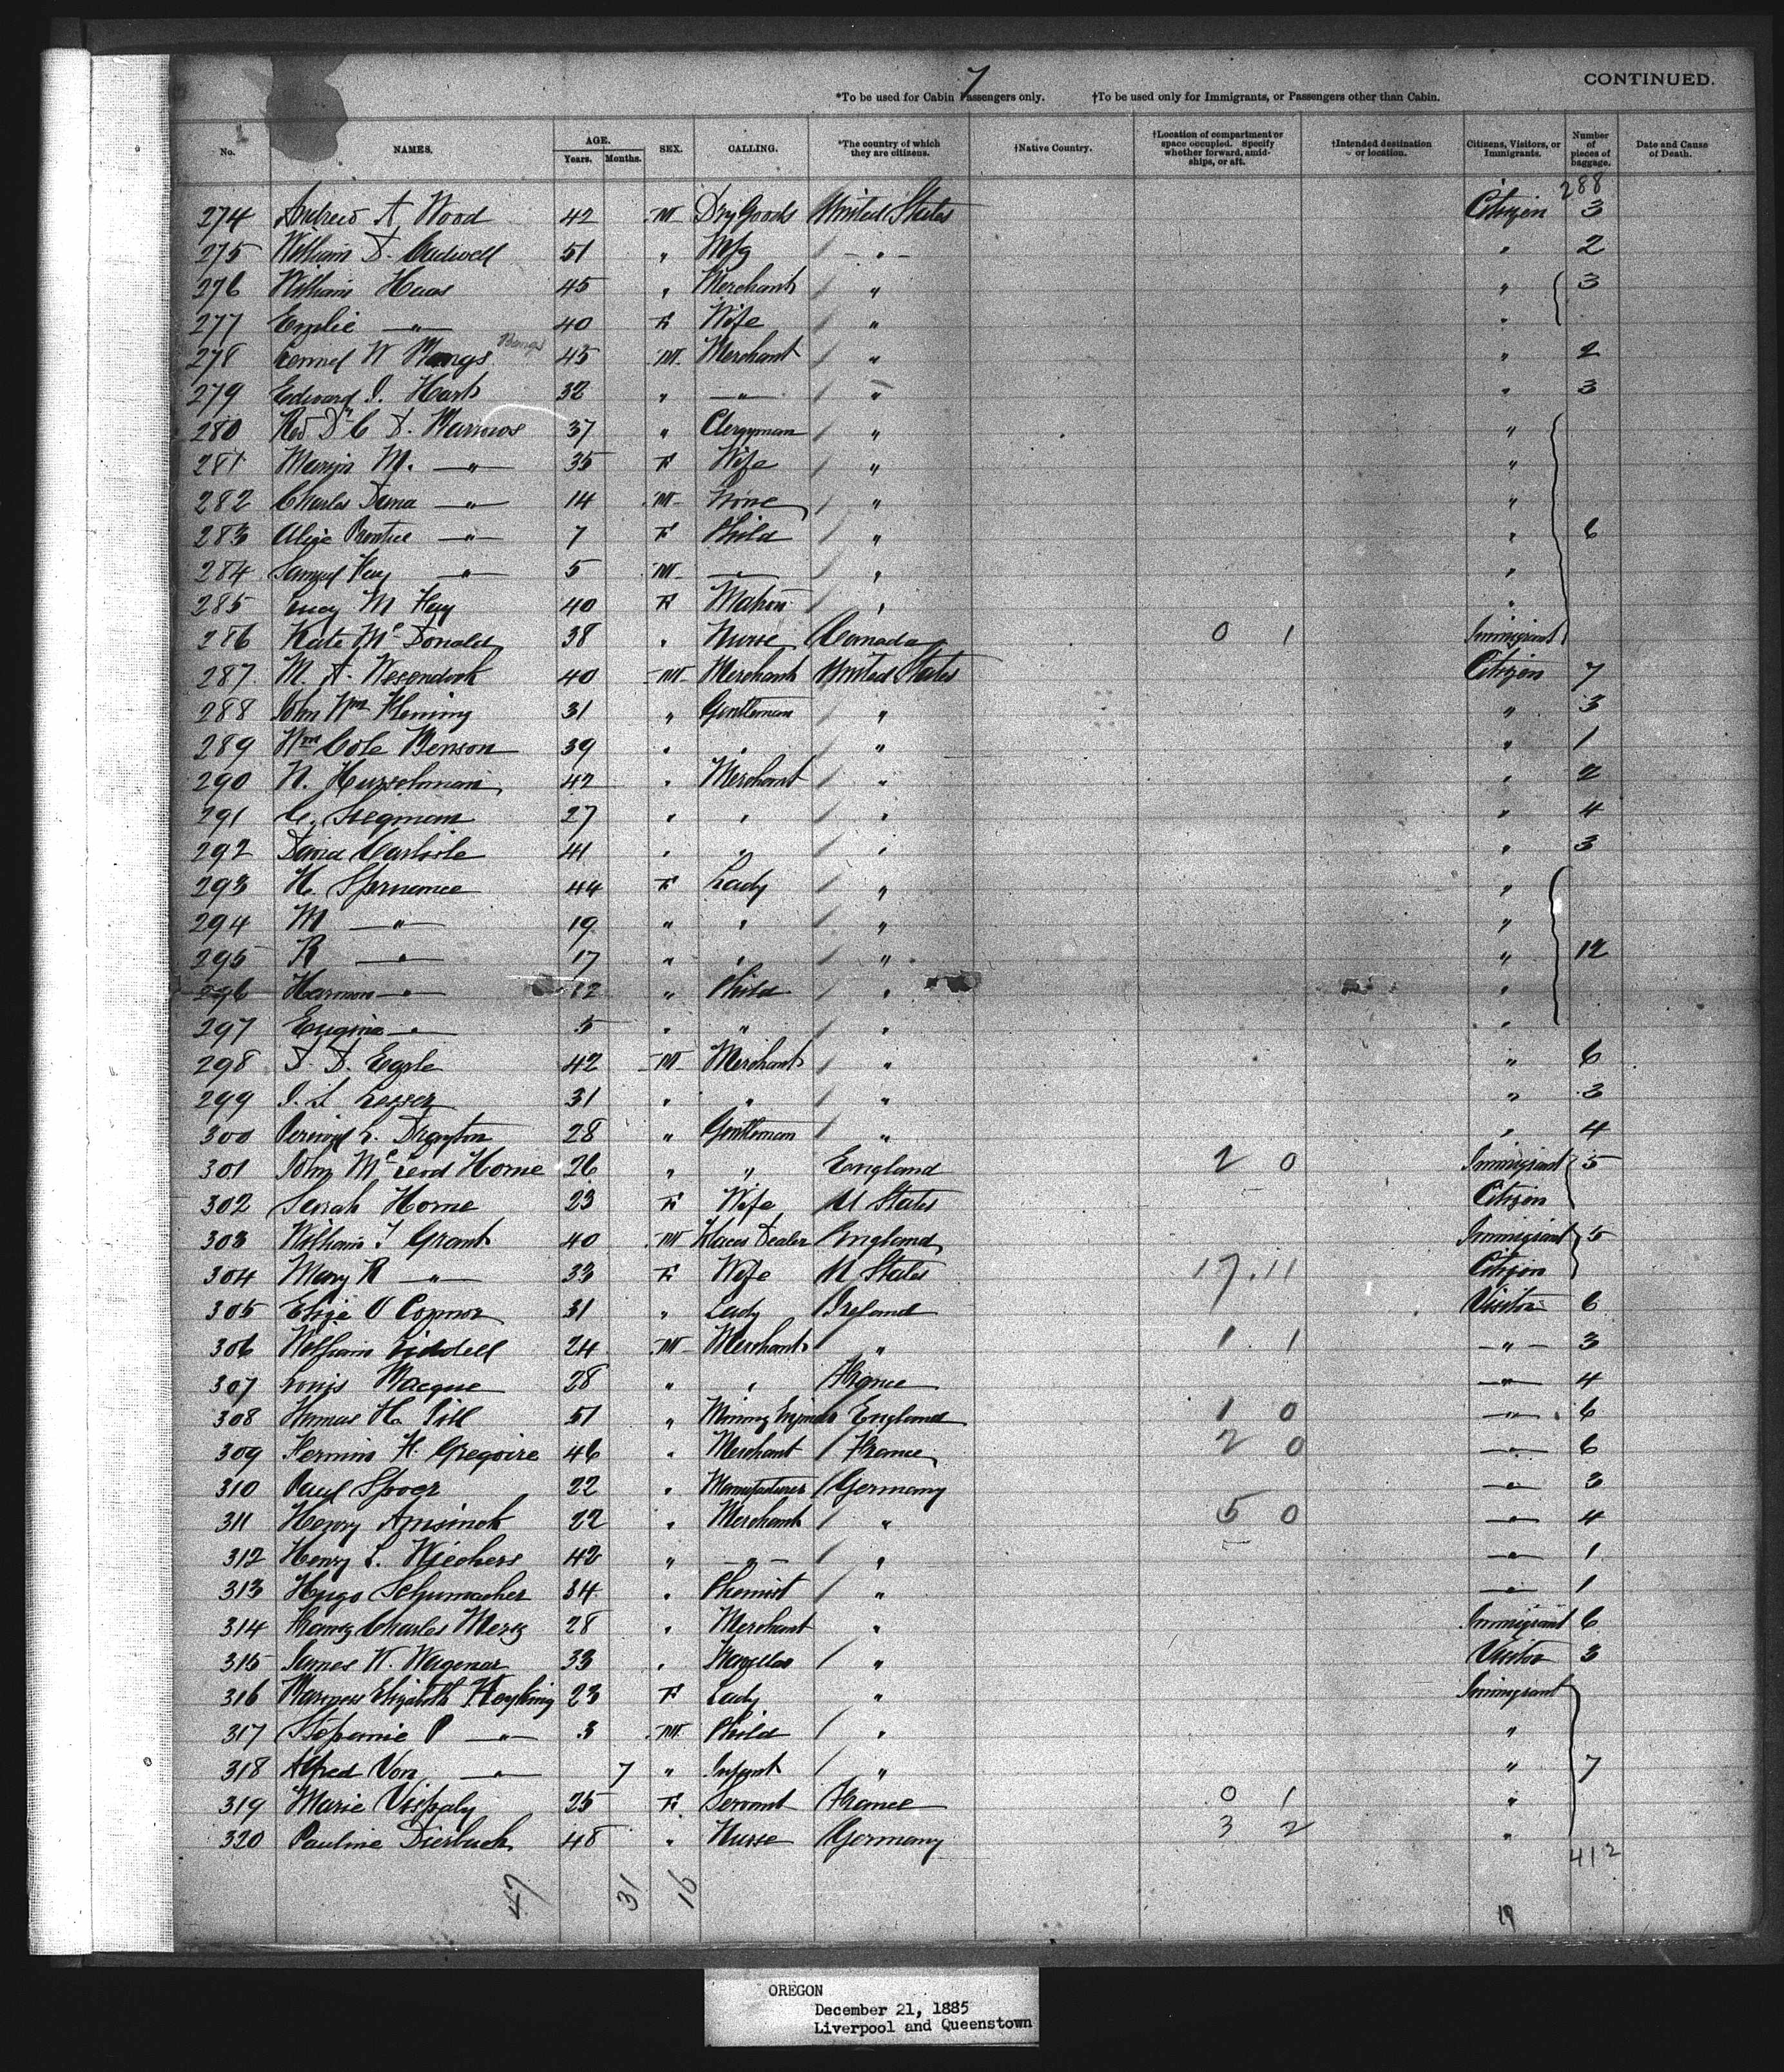 7
CONTINUED.
*To be used for Cabin Passengers only. †To be used only for Immigrants, or Passengers other than Cabin.
No. NAMES. AGE. Years. Months. SEX. CALLING. *The country of which they are citizens. †Native Country. †Location of compartment or space occupied. Specify whether forward, amidships, or aft. †Intended destination or location. Citizens, Visitors, or Immigrants. Number of pieces of baggage. Date and Cause of Death.
288
274 Andrew A Wood 42 M Dry Goods United States Citizen 3
275 William D. Cudwell 51 " Mfg " " 2
276 William Haas 45 " Merchant " " 3
277 Emelie " 40 F Wife " "
278 Lemuel W Bangs Bangs 45 M Merchant " " 2
279 Edward I. Hart 32 " " " " 3
280 Rev Dr C D. Barrows 37 " Clergyman " "
281 M. " 35 F Wife " "
282 Charles Dana " 14 M None " "
283 Alice Prentice " 7 F Child " " 6
284 Samuel " 5 M " " "
285 Lucy M Hay 40 F Matron " "
286 Kate McDonald 38 " Nurse Canada 0 1 Immigrant
287 M. A. Wesendonk 40 M Merchant United States Citizen 7
288 John Wm Fleming 31 " Gentleman " " 3
289 Wm Cole Benson 39 " " " " 1
290 N. 42 " Merchant " " 2
291 C. Stegman 27 " " " " 4
292 David Carlisle 41 " " " " 3
293 H. Spruance 44 F Lady " "
294 M " 19 " " " "
295 R " 17 " " " " 12
296 Harmon " 12 " Child " "
297 Eugina " 5 " " " "
298 42 M Merchant " " 6
299 Lesser 31 " " " " 3
300 Percival L. Drayton 28 " Gentleman " " 4
301 John McLeod Horne 26 " " England 2 0 Immigrant 5
302 Sarah Horne 23 F Wife U States Citizen
303 William Grant 40 M Laces Dealer England Immigrant 5
304 Mary R " 33 F Wife U States 17.11 Citizen
305 Eliza O Connor 31 " Lady Ireland Visitor 6
306 William Liddell 24 M Merchant " 1 1 " 3
307 Louis Bacque 28 " " France " 4
308 Thomas H. 51 " Mining Engineer England 1 0 " 6
309 Fermin H. Gregoire 46 " Merchant France 2 0 " 6
310 Paul Spoer 22 " Manufacturer Germany " 3
311 Henry Amsinck 22 " Merchant " 5 0 " 4
312 Henry L. Wiechers 42 " " " " 1
313 Hugo Schumacher 34 " Chemist " " 1
314 Franz Charles Merz 28 " Merchant " Immigrant 6
315 James W. Wagener 33 " Traveller " Visitor 3
316 Baroness Elizabeth Heyking 23 F Lady " Immigrant
317 Stefanie P " 3 M Child " "
318 Alfred Von " 7 " Infant " " 7
319 Marie Vispaly 25 F Servant France 0 1 "
320 Pauline Dierbach 48 " Nurse Germany 3 2 "
412
47 31 16
19
OREGON
December 21, 1885
Liverpool and Queenstown